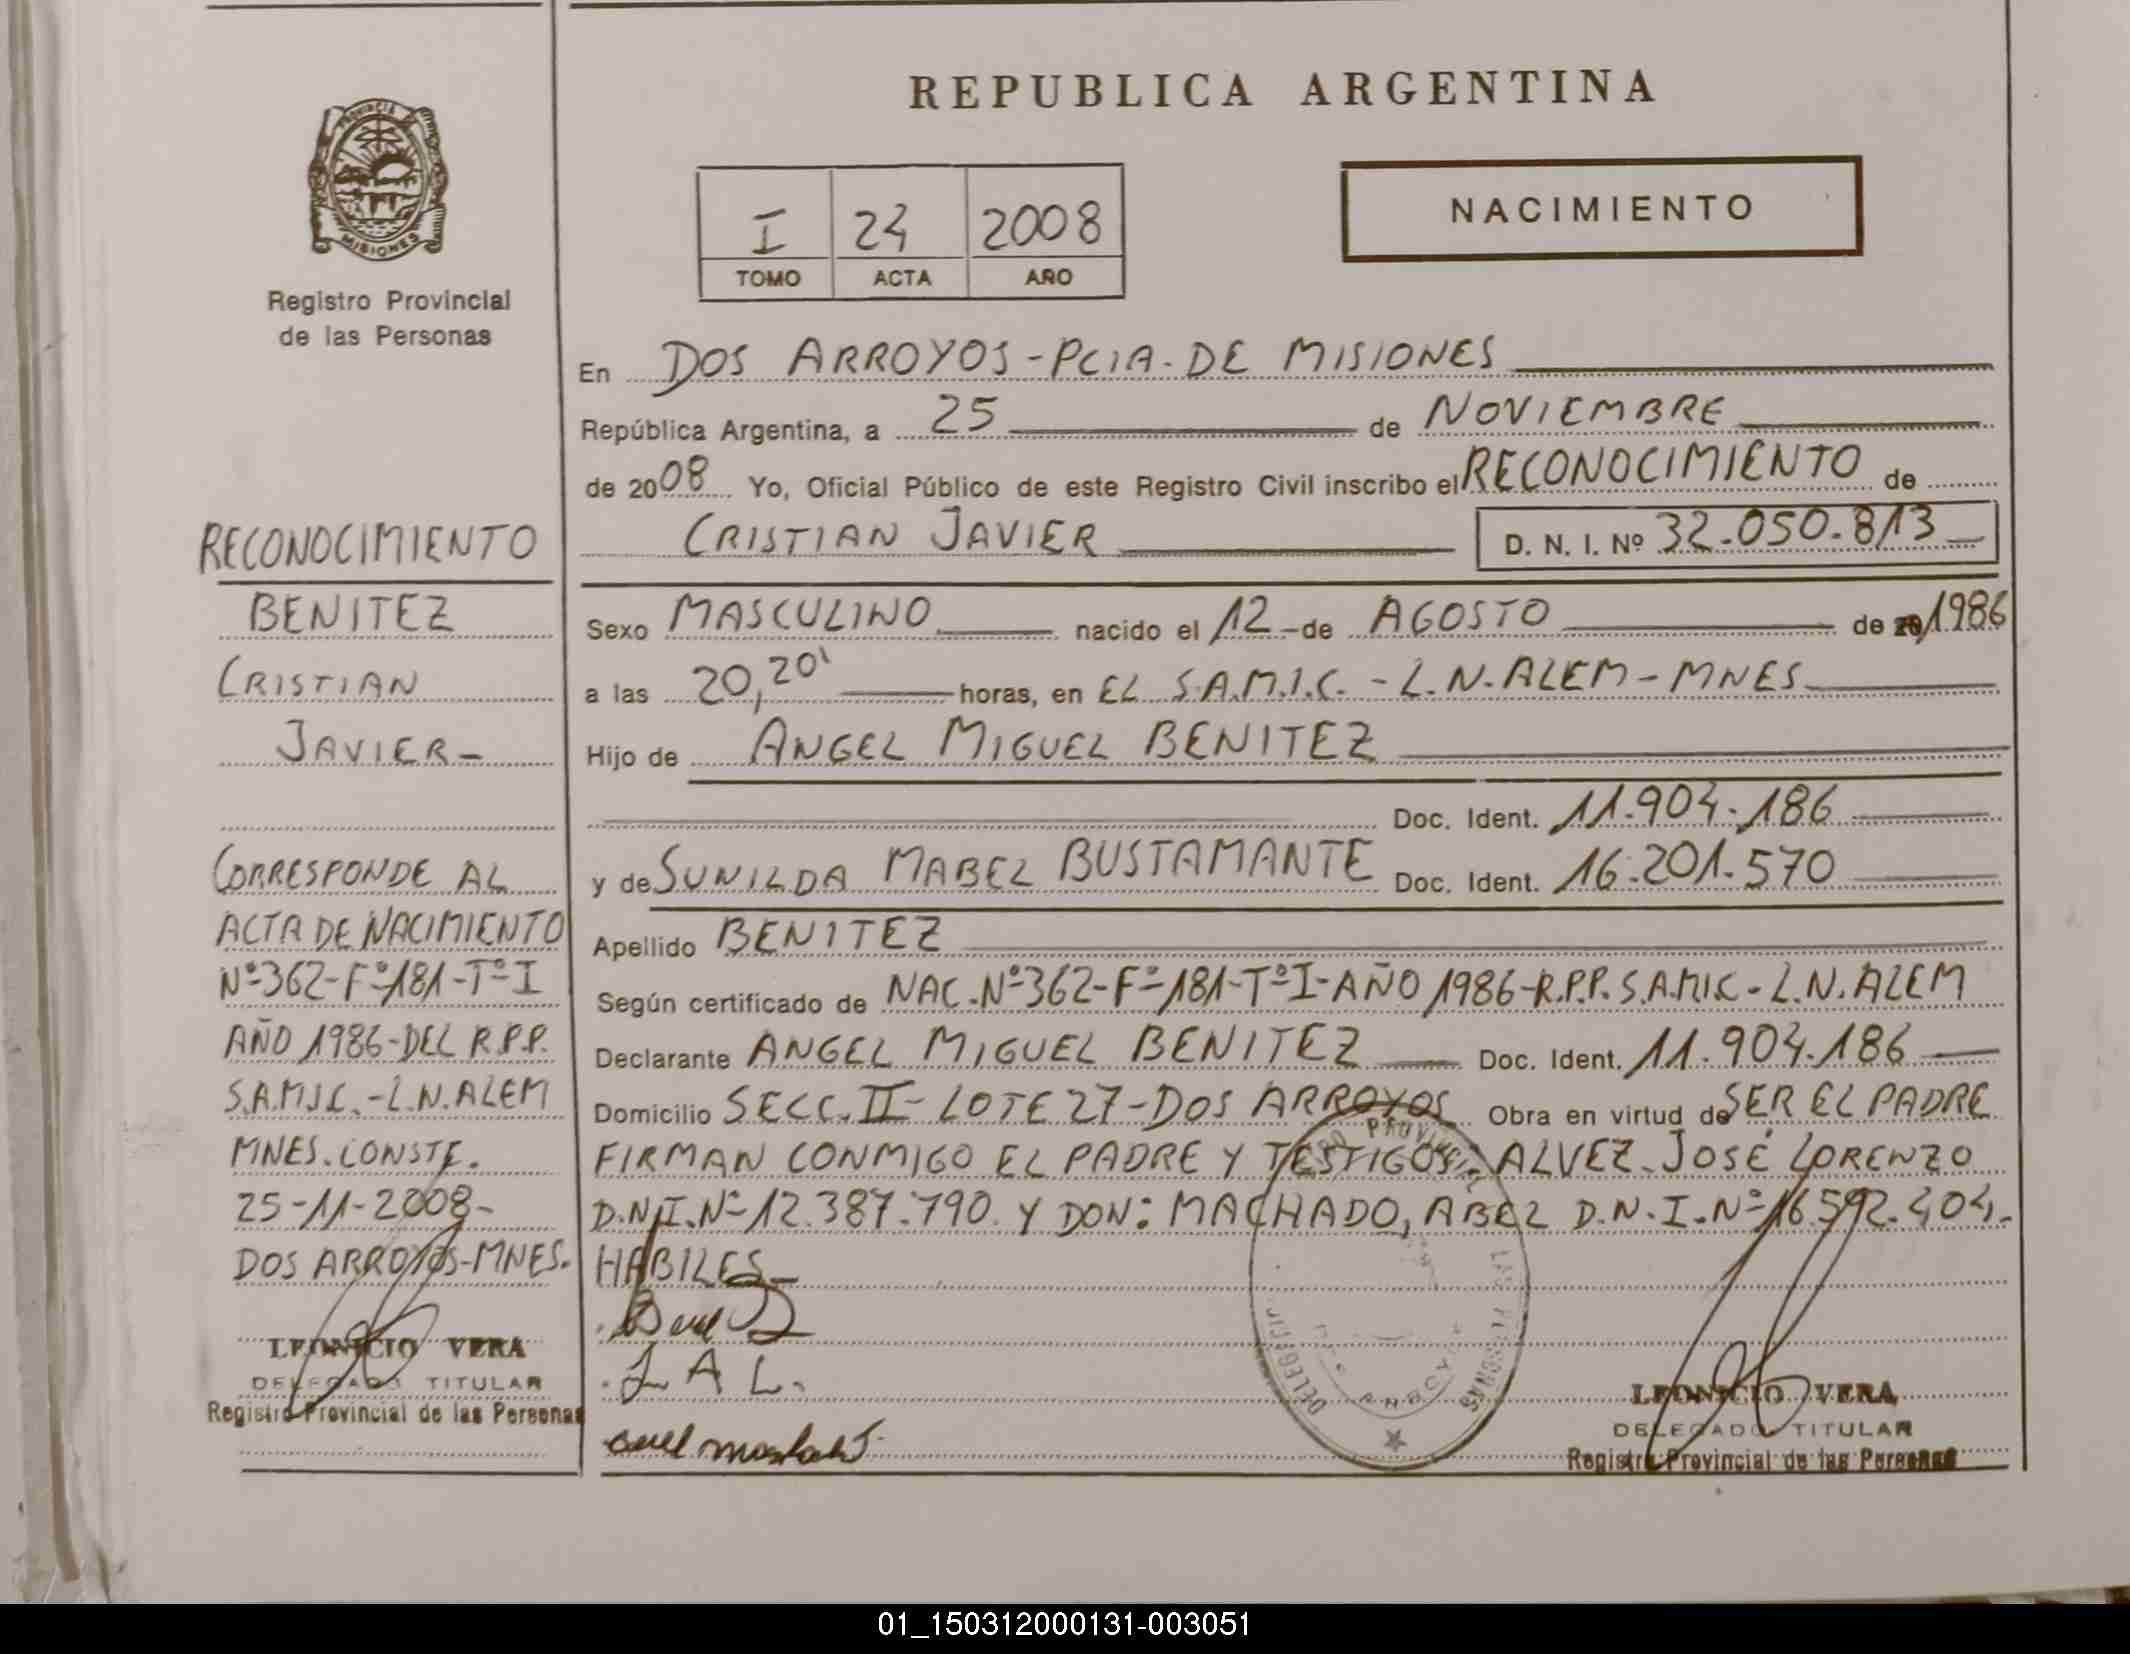 REPUBLICA ARGENTINA
PROVINCIA
MISIONES
Registro Provincial
de las Personas
I 24 2008
TOMO ACTA AÑO
NACIMIENTO
En DOS ARROYOS-PCIA-DE MISIONES
República Argentina, a 25 de NOVIEMBRE
de 2008 Yo, Oficial Público de este Registro Civil inscribo el RECONOCIMIENTO de
CRISTIAN JAVIER D. N. I. Nº 32.050.813
Sexo MASCULINO nacido el 12 de AGOSTO de 1986
a las 20,20' horas, en EL S.A.M.I.C. - L.N.ALEM-MNES
Hijo de ANGEL MIGUEL BENITEZ
Doc. Ident. 11.904.186
y de SUNILDA MABEL BUSTAMANTE Doc. Ident. 16.201.570
Apellido BENITEZ
Según certificado de NAC.Nº362-Fº181-TºI-AÑO 1986-R.P.P. S.A.M.I.C.-L.N.ALEM
Declarante ANGEL MIGUEL BENITEZ Doc. Ident. 11.904.186
Domicilio SECC.II-LOTE 27-DOS ARROYOS Obra en virtud de SER EL PADRE
FIRMAN CONMIGO EL PADRE Y TESTIGOS: ALVEZ JOSÉ LORENZO
D.N.I.Nº12.387.790 Y DON: MACHADO, ABEL D.N.I.Nº16.592.404.
HABILES
L A L.
LEONICIO VERA
DELEGADO TITULAR
Registro Provincial de las Personas
RECONOCIMIENTO
BENITEZ
CRISTIAN
JAVIER-
CORRESPONDE AL
ACTA DE NACIMIENTO
Nº362-Fº181-TºI
AÑO 1986-DEL R.P.P.
S.A.M.I.C.-L.N.ALEM
MNES.CONSTE.
25-11-2008-
DOS ARROYOS-MNES.
LEONICIO VERA
DELEGADO TITULAR
Registro Provincial de las Personas
01_150312000131-003051